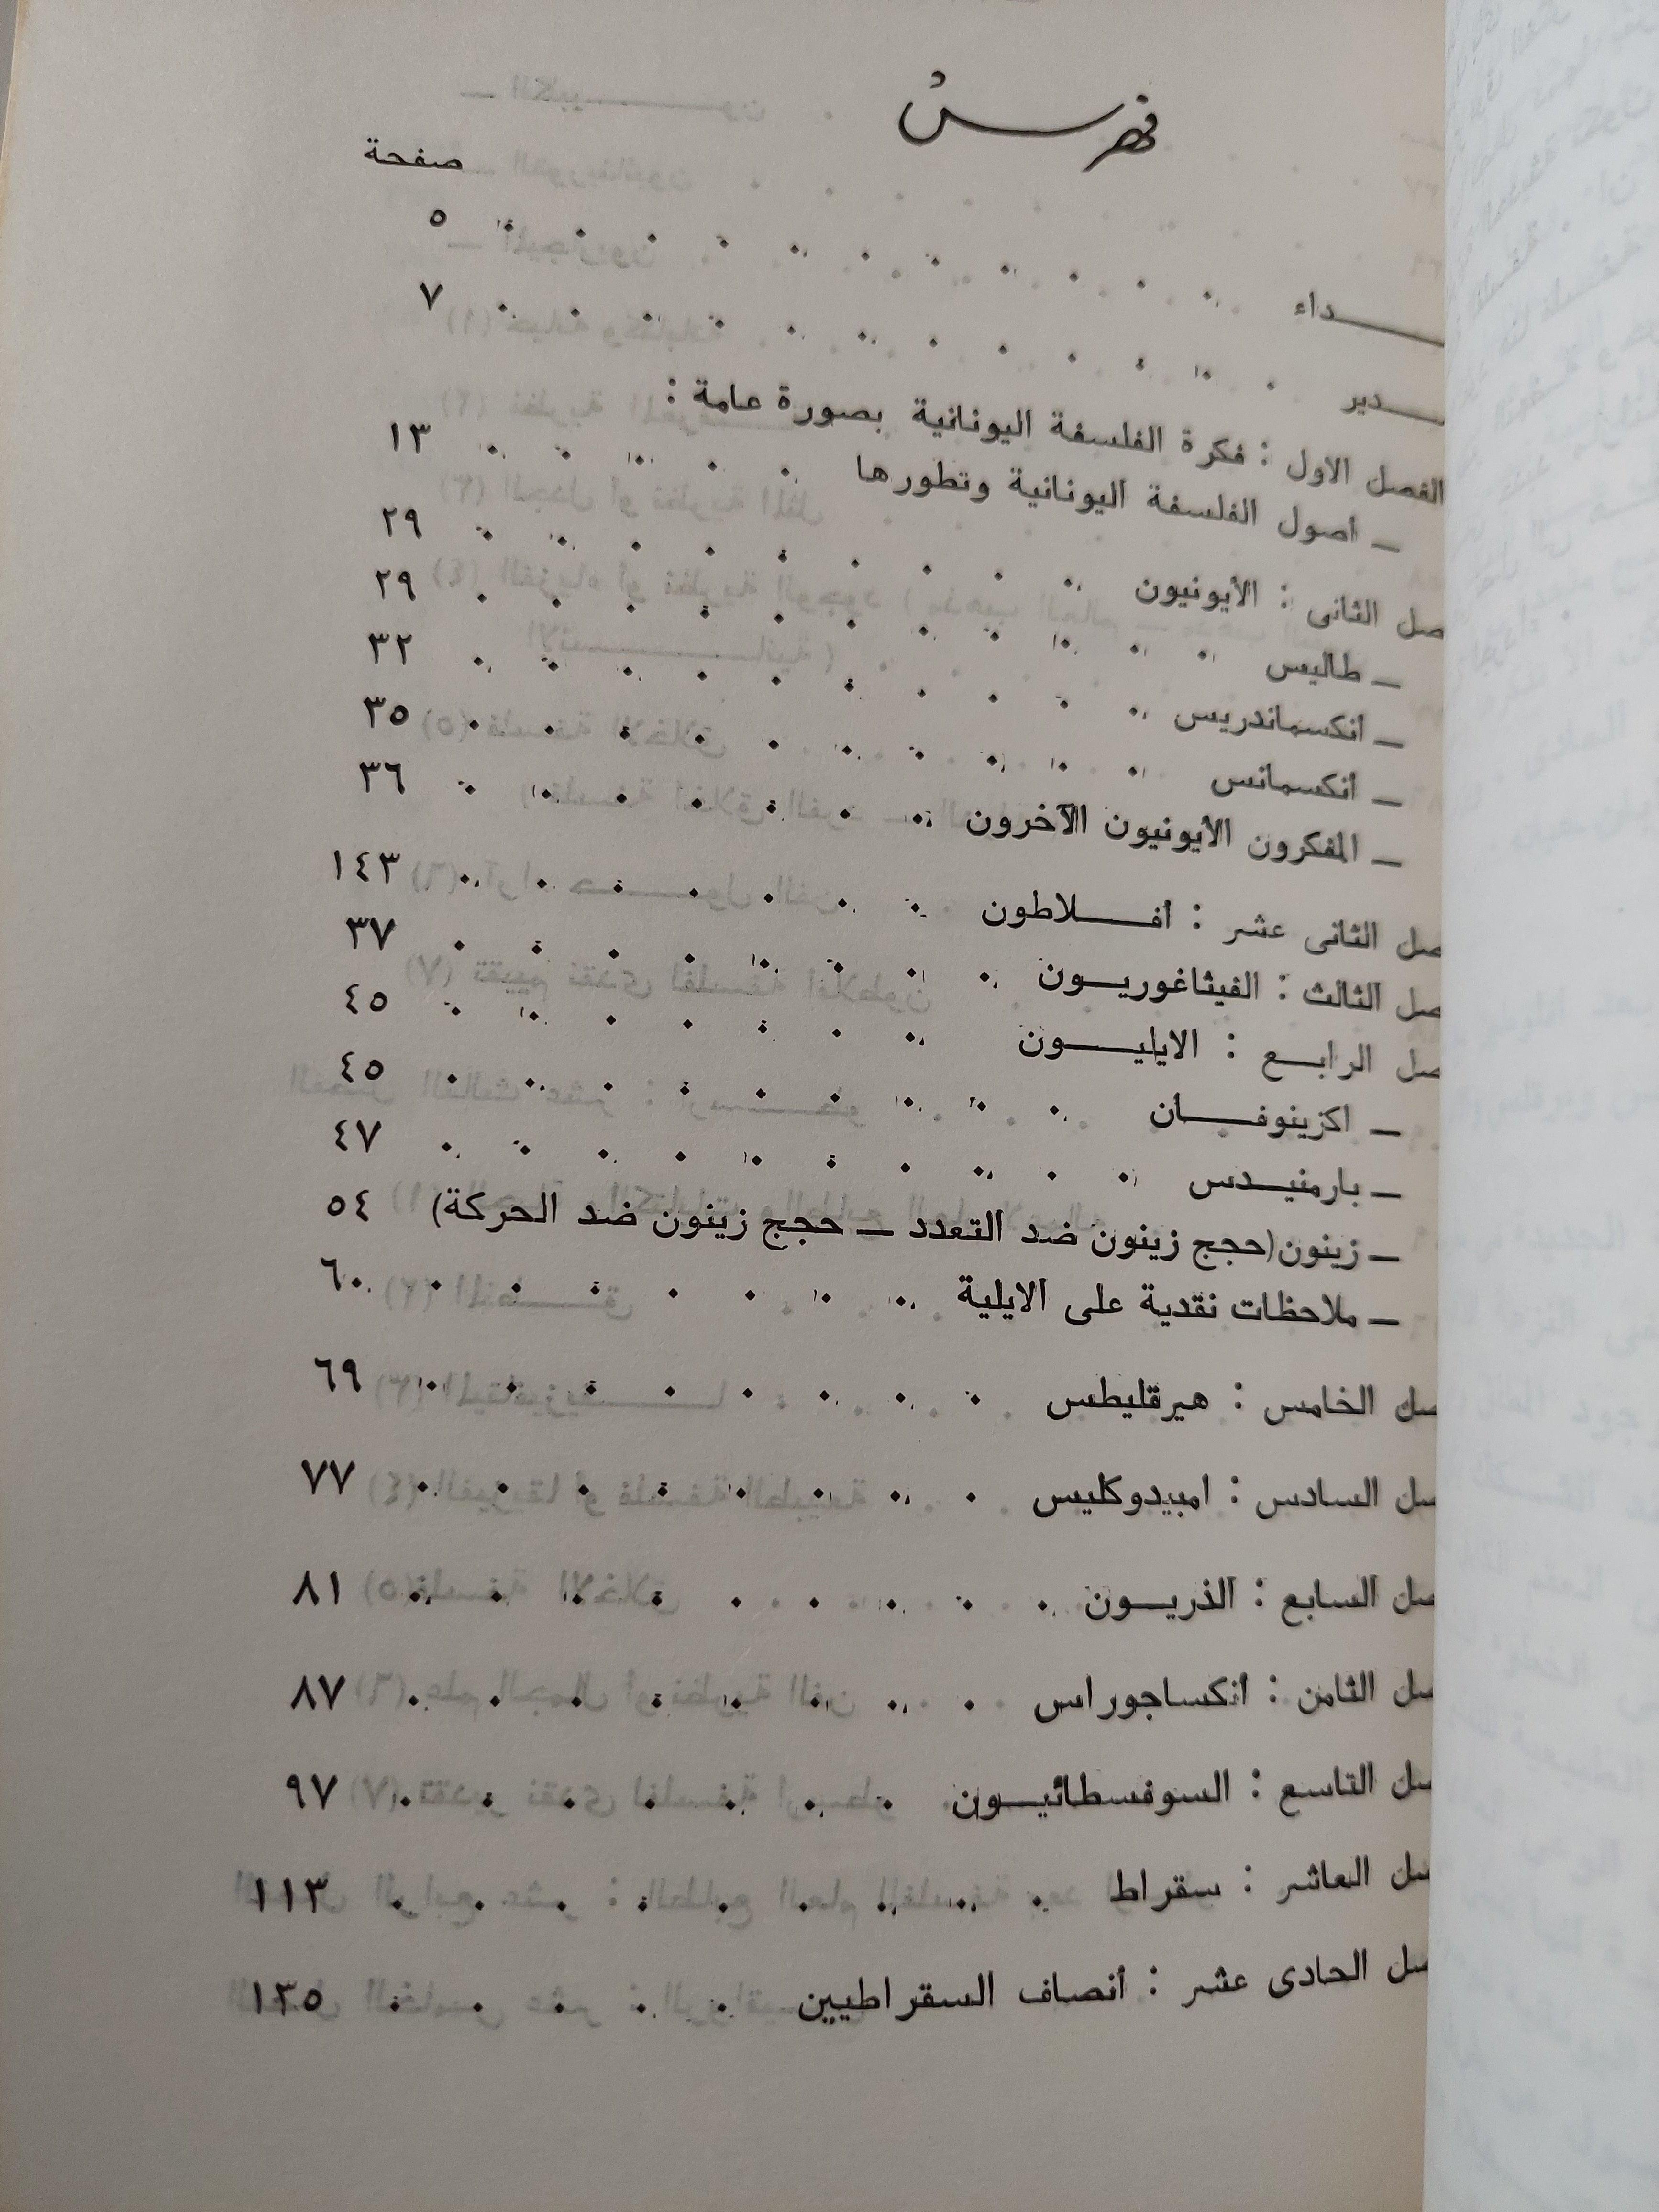 فهرس
صفحة
ـداء ٥
ـدير ٧
الفصل الاول : فكرة الفلسفة اليونانية بصورة عامة :
ـ اصول الفلسفة اليونانية وتطورها ١٣
صل الثانى : الأيونيون ٢٩
ـ طاليس ٢٩
ـ أنكسماندريس ٣٢
ـ أنكسمانس ٣٥
ـ المفكرون الأيونيون الآخرون ٣٦
صل الثانى عشر : أفـــلاطون ١٤٣
صل الثالث : الفيثاغوريـــون ٣٧
صل الرابـع : الايليـــون ٤٥
ـ اكزينوفـــان ٤٥
ـ بارمنيـدس ٤٧
ـ زينون (حجج زينون ضد التعدد ـ حجج زينون ضد الحركة) ٥٤
ـ ملاحظات نقدية على الايلية ٦٠
صل الخامس : هيرقليطس ٦٩
صل السادس : امبيدوكليس ٧٧
صل السابع : الذريـــون ٨١
صل الثامن : أنكساجوراس ٨٧
صل التاسع : السوفسطائيـــون ٩٧
صل العاشر : سقراط ١١٣
صل الحادى عشر : أنصاف السقراطيين ١٣٥